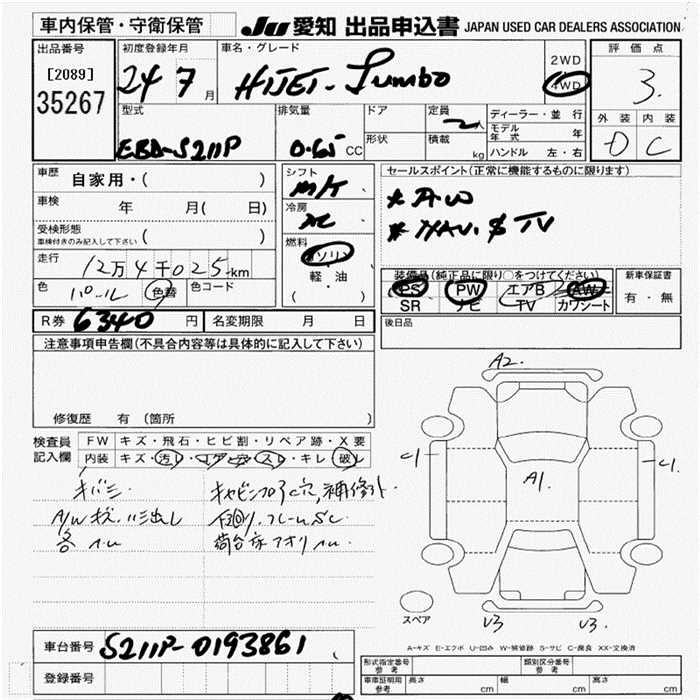 車内保管・守衛保管 JU 愛知 出品申込書 JAPAN USED CAR DEALERS ASSOCIATION
出品番号 初度登録年月 車名・グレード 2WD 4WD 評価点
[2089] 24 7月 HIJET - Jumbo 3.
35267 型式 排気量 ドア 定員 2人 ディーラー・並行 外装 内装
EBD-S211P 0.65 CC 形状 積載 kg モデル年式 年 D C
ハンドル 左・右
車歴 自家用・( ) シフト M/T セールスポイント(正常に機能するものに限ります)
車検 年 月( 日) 冷房 AC * AW
受検形態 車検付きのみ記入して下さい ( ) 燃料 ガソリン * NAV. $ TV
走行 12万4千025km 軽・油
色 パール 色替 色コード ( ) 装備品(純正品に限り○をつけてください) 新車保証書
PS PW エアB AW 有・無
SR ナビ TV カワシート
R券 6340 円 名変期限 月 日 後日品
注意事項申告欄(不具合内容等は具体的に記入して下さい)
修復歴 有 (箇所 )
検査員記入欄 FW キズ・飛石・ヒビ割・リペア跡・X要
内装 キズ・汚レ・コゲ・スレ・キレ・破レ
A2.
C1 A1. C1.
スペア U3 U3.
A-キズ E-エクボ U-凹み W-補修跡 S-サビ C-腐食 XX-交換済
車台番号 S211P-0193861
登録番号
型式指定番号 参考 類別区分番号 参考
車庫証明用 参考 長さ cm 幅 cm 高さ cm